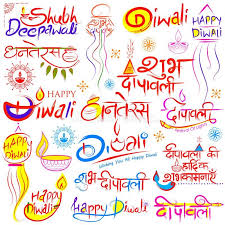 Shubh
Deepawali
Diwali
HAPPY
DIWALI
धनतेरस
शुभ
दीपावली
Diwali
धनतेरस
शुभ
दीपावली
HAPPY
DIWALI
Diwali
Wishing You All Happy Diwali
शुभ
दीपावली
दीपावली की
हार्दिक
शुभकामनाएँ
Happy
Diwali
Happy Diwali
दीपावली